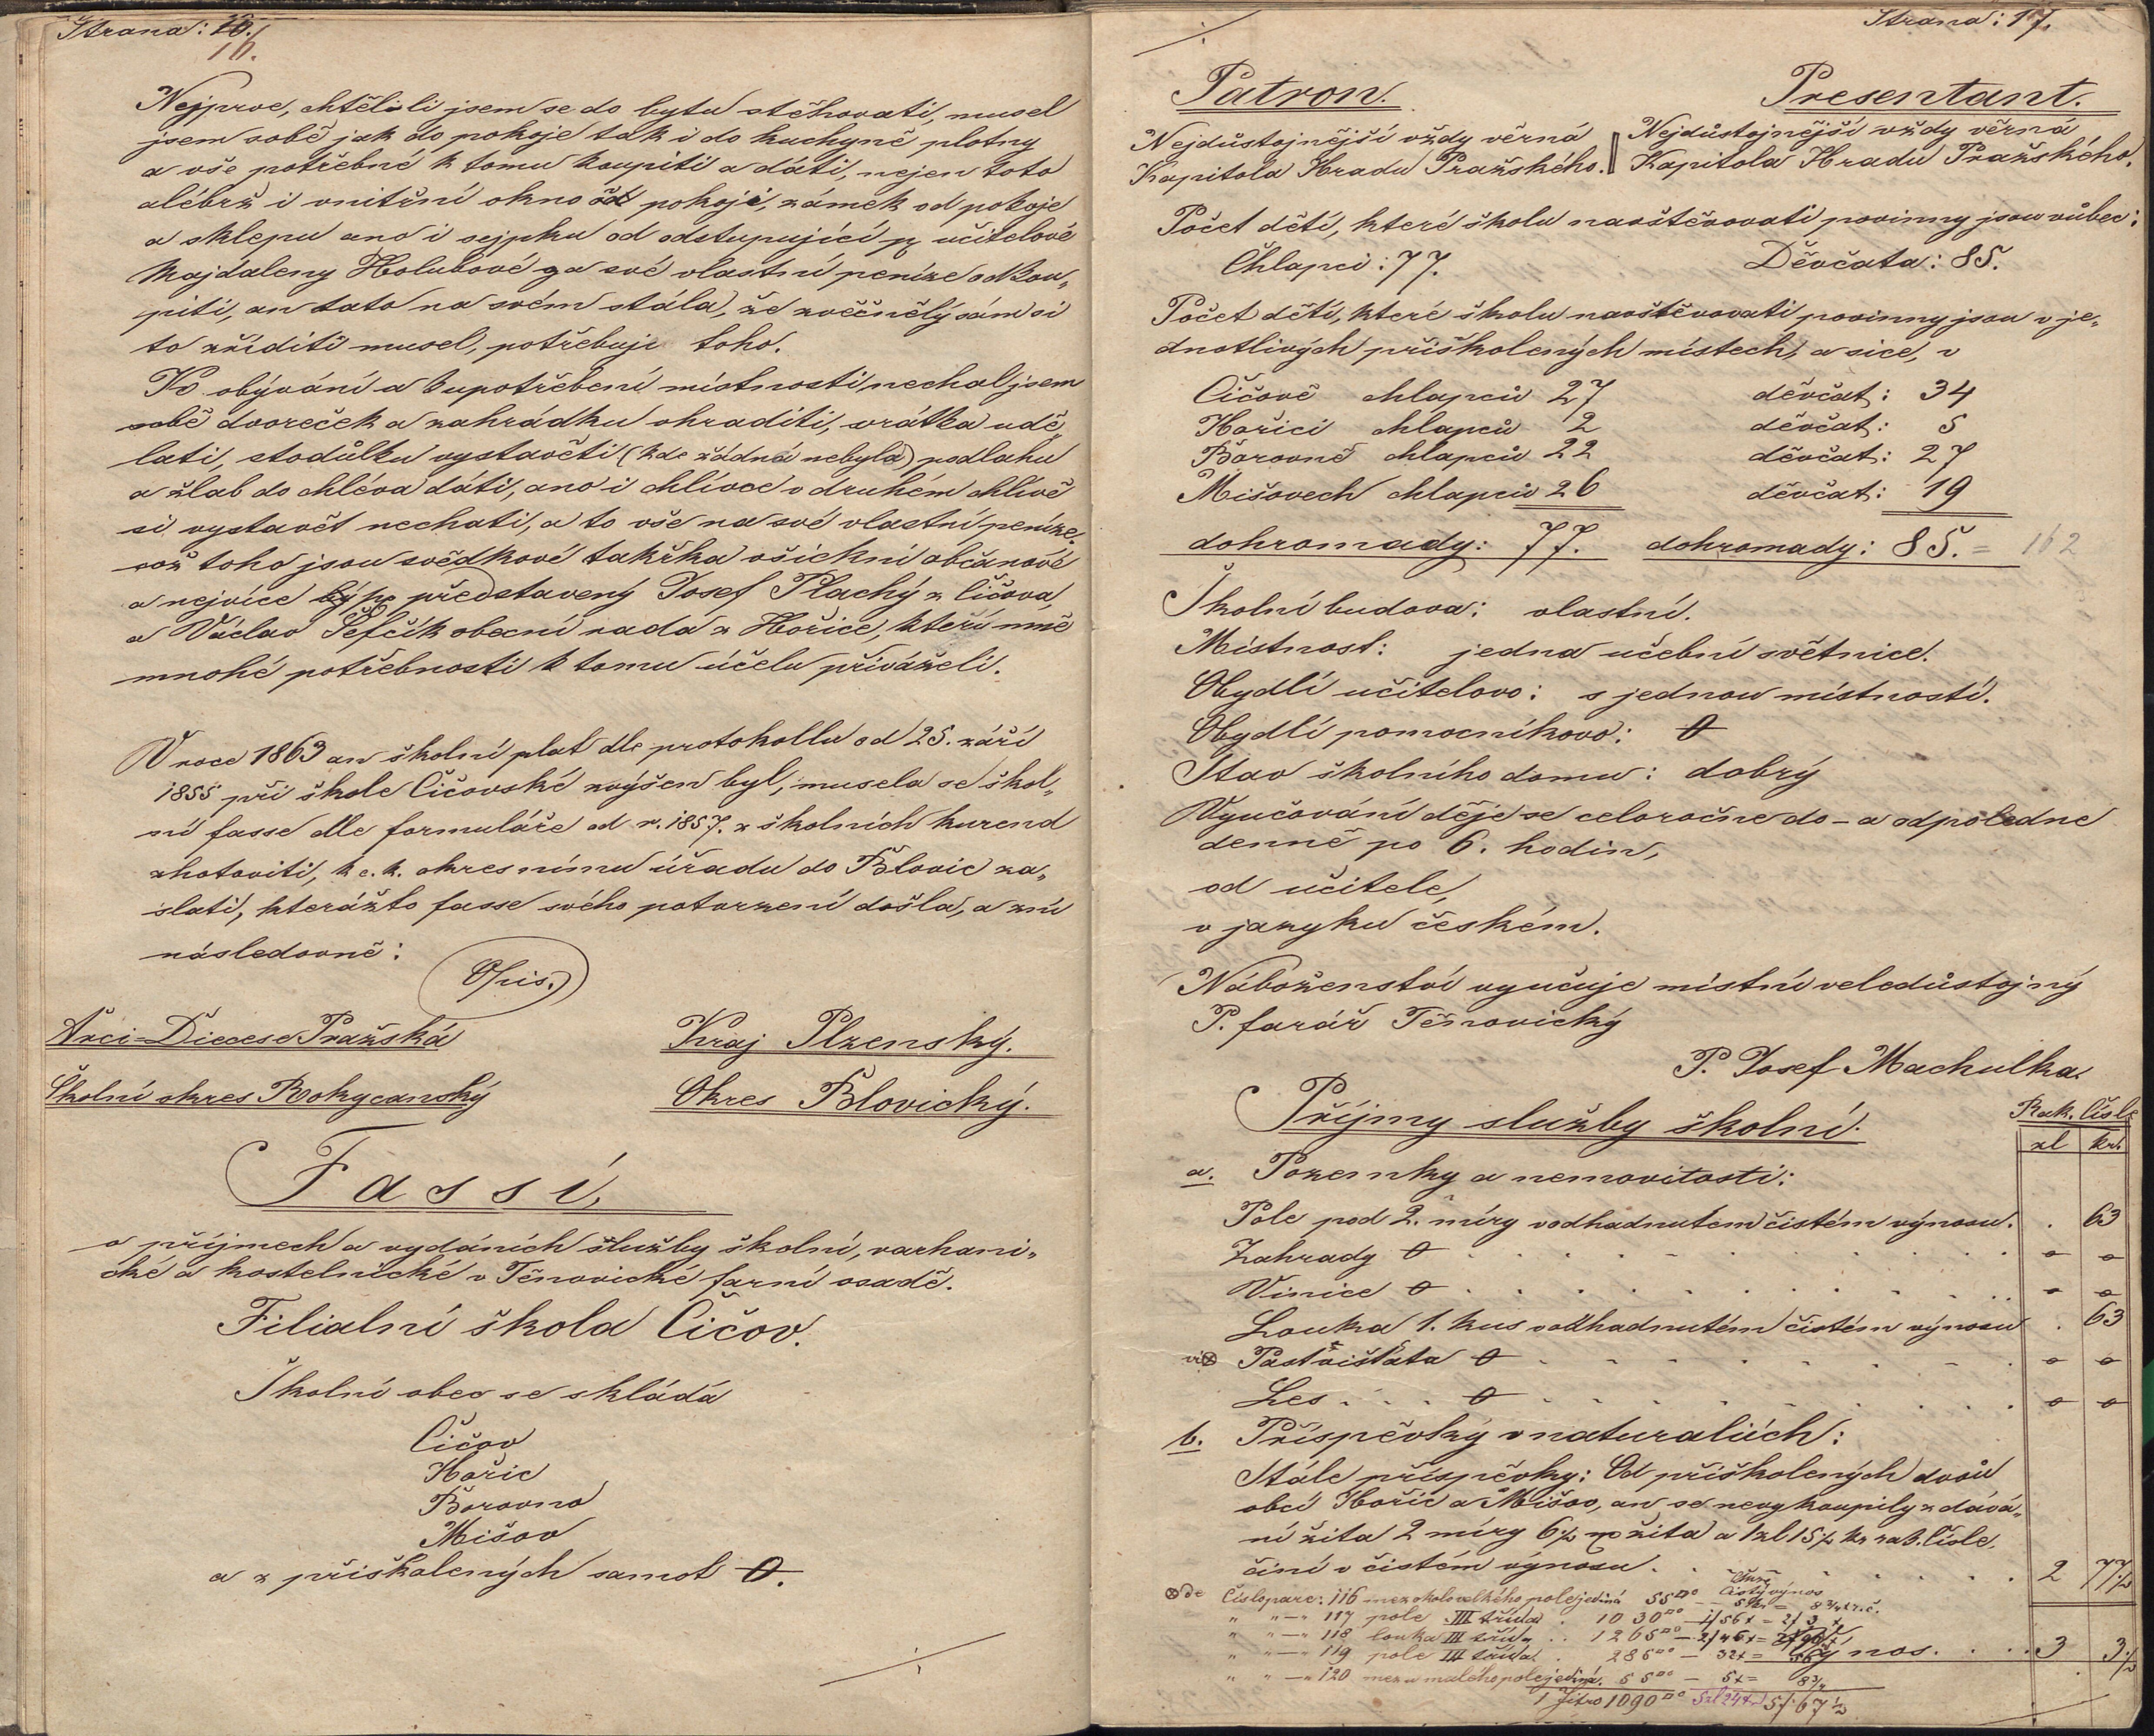 Strana: 16.
16.
Nejprve, chtěl-li jsem se do bytu stěhovati, musel
jsem sobě jak do pokoje tak i do kuchyně plotny
a vše potřebné k tomu koupiti a dáti, nejen toto
alébrž i vnitřní okno pokoji, zámek od pokoje
a sklepu ano i sejpku od odstupující p učitelové
Majdaleny Holubové za své vlastní peníze odkou„
piti, an tato na svém stála, že zvěčnělý sám si
to zříditi musel, potřebuje toho.
Ku obývání a ku potřebení místnosti, nechal jsem
sobě dvoreček a zahrádku ohraditi, vrátka udě„
lati, stodůlku vystavěti (kde žádná nebyla) podlahu
a žlab do chléva dáti, ano i chlívce v druhém chlívě
si vystavět nechati, a to vše na své vlastní peníze.
což toho jsou svědkové takřka všickni občanové
a nejvíce představený Josef Plachý z Čičova,
a Václav Šefčík obecní rada z Hořice, kteří mně
mnohé potřebnosti k tomu účelu přiváželi.
V roce 1863 an školní plat dle protokollu od 25. září
1855 při škole Čičovské zvýšen byl, musela se škol„
ní fasse dle formuláře od r. 1857. z školních kurend
zhotoviti, k c. k. okresnímu úřadu do Blovic za„
slati, kterážto fasse svého potvrzení došla, a zní
následovně:
Opis.
Arci=Diecese Pražská Kraj Plzenský.
Školní okres Rokycanský Okres Blovický.
Fassí,
o příjmech a vydáních služby školní, varhani„
cké a kostelnické v Těnovické farní osadě.
Filialní škola Čičov.
Školní obec se skládá
Čičov
Hořic
Borovno
Mišov
a z přiškolených samot 0.
Strana: 17.
Patron. Presentant.
Nejdůstojnější vždy věrná Nejdůstojnější vždy věrná
Kapitola Hradu Pražského. Kapitola Hradu Pražského.
Počet dětí, které školu navštěvovati povinny jsou vůbec:
Chlapci: 77. Děvčata: 85.
Počet dětí, které školu navštěvovati povinny jsou v je„
dnotlivých přiškolených místech, a sice, v
Čičově chlapců 27 děvčat: 34
Hořici chlapců 2 děvčat: 5
Borovně chlapců 22 děvčat: 27
Mišovech chlapců 26 děvčat: 19
dohromady: 77. dohromady: 85. = 162
Školní budova: vlastní.
Místnost: jedna učební světnice.
Obydlí učitelovo: s jednou místností.
Obydlí pomocníkovo: 0
Stav školního domu: dobrý
Vyučování děje se celoročne do- a odpoledne
denně po 6. hodin,
od učitele,
v jazyku českém.
Náboženství vyučuje místní veledůstojný
P. farář Těnovický
P. Josef Machulka.
Příjmy služby školní. Rak. čísle
zl kr.
a. Pozemky a nemovitosti:
Pole pod 2. míry v odhadnutém čistém výnosu. . 63
Zahrady 0 0 0
Vinice 0 0 0
Louka 1. kus v odhadnutém čistém výnosu . 63
Pastvišťata 0 0 0
Les 0 0 0
b. Příspěvky v naturaliích:
Stálé příspěvky: Od přiškolených dvou
obcí Hořic a Mišov, an se nevykoupily z dává„
ní žita 2 míry 6/2 žita a 1 zl 15/2 kr rak. čísle.
činí v čistém výnosu 2 77/2
Číslo parc: 116 mez okolo velkého pole jediná 55 Čistý výnos 5kr = 8 3/4 kr. č.
" " — " 117 pole III třída . 1030 — 1/56 x = 2/3
" " — " 118 louka III tříd .. 1265 — 2/46x =
" " — " 119 pole III třída . 285 — 32x = Výnos. . . . 3 3/2
" " — " 120 mez u malého pole jediná. 55 — 5x = 8 3/4
1 Jitro 1090 5zl 24x 5/67½